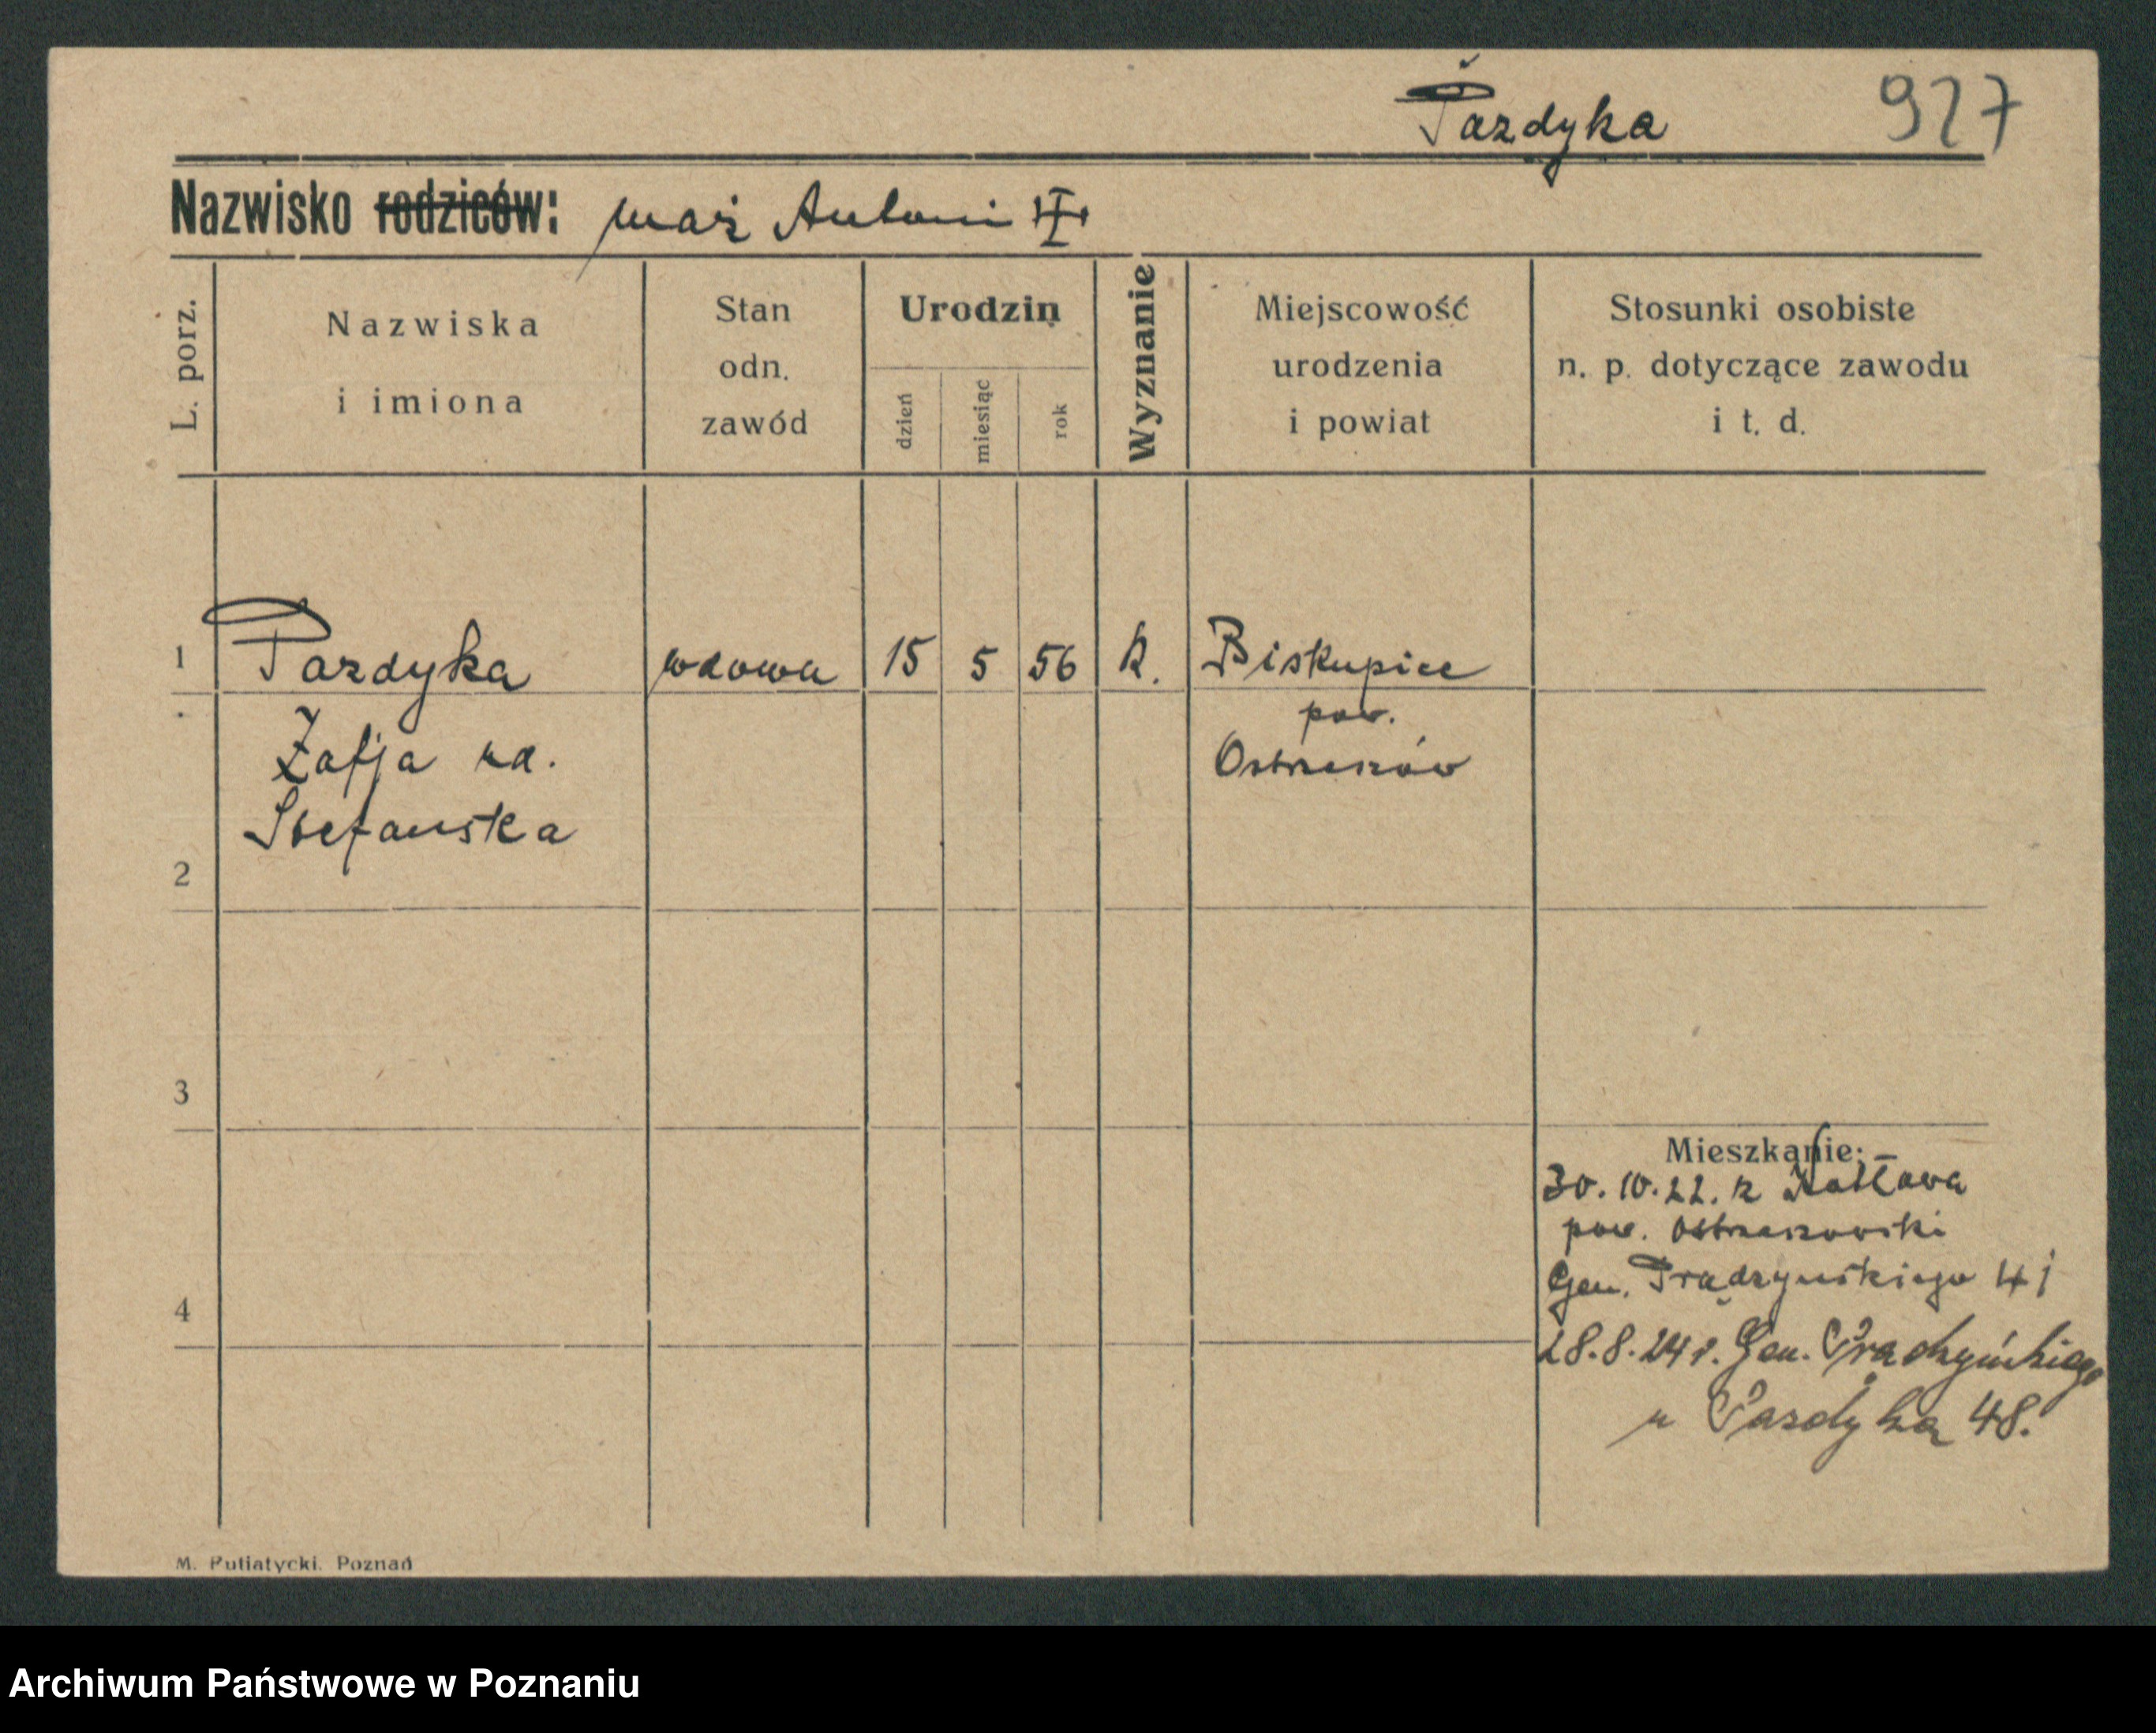 Pazdyka 927
Nazwisko rodziców: mąż Antoni
L. porz.
Nazwiska i imiona
Stan odn. zawód
Urodzin
dzień miesiąc rok
Wyznanie
Miejscowość urodzenia i powiat
Stosunki osobiste n. p. dotyczące zawodu i t. d.
1 Pazdyka wdowa 15 5 56 k. Biskupice
pow.
Zofja ud. Ostrzeszów
Stefanska
2
3
Mieszkanie:
30.10.22. z Kotłowa
pow. Ostrzeszowski
4 Gen. Prądzyńskiego 4
28.8.24 r. Gen. Prądzyńskiego
u Pazdyka 48.
M. Putiatycki. Poznań
Archiwum Państwowe w Poznaniu